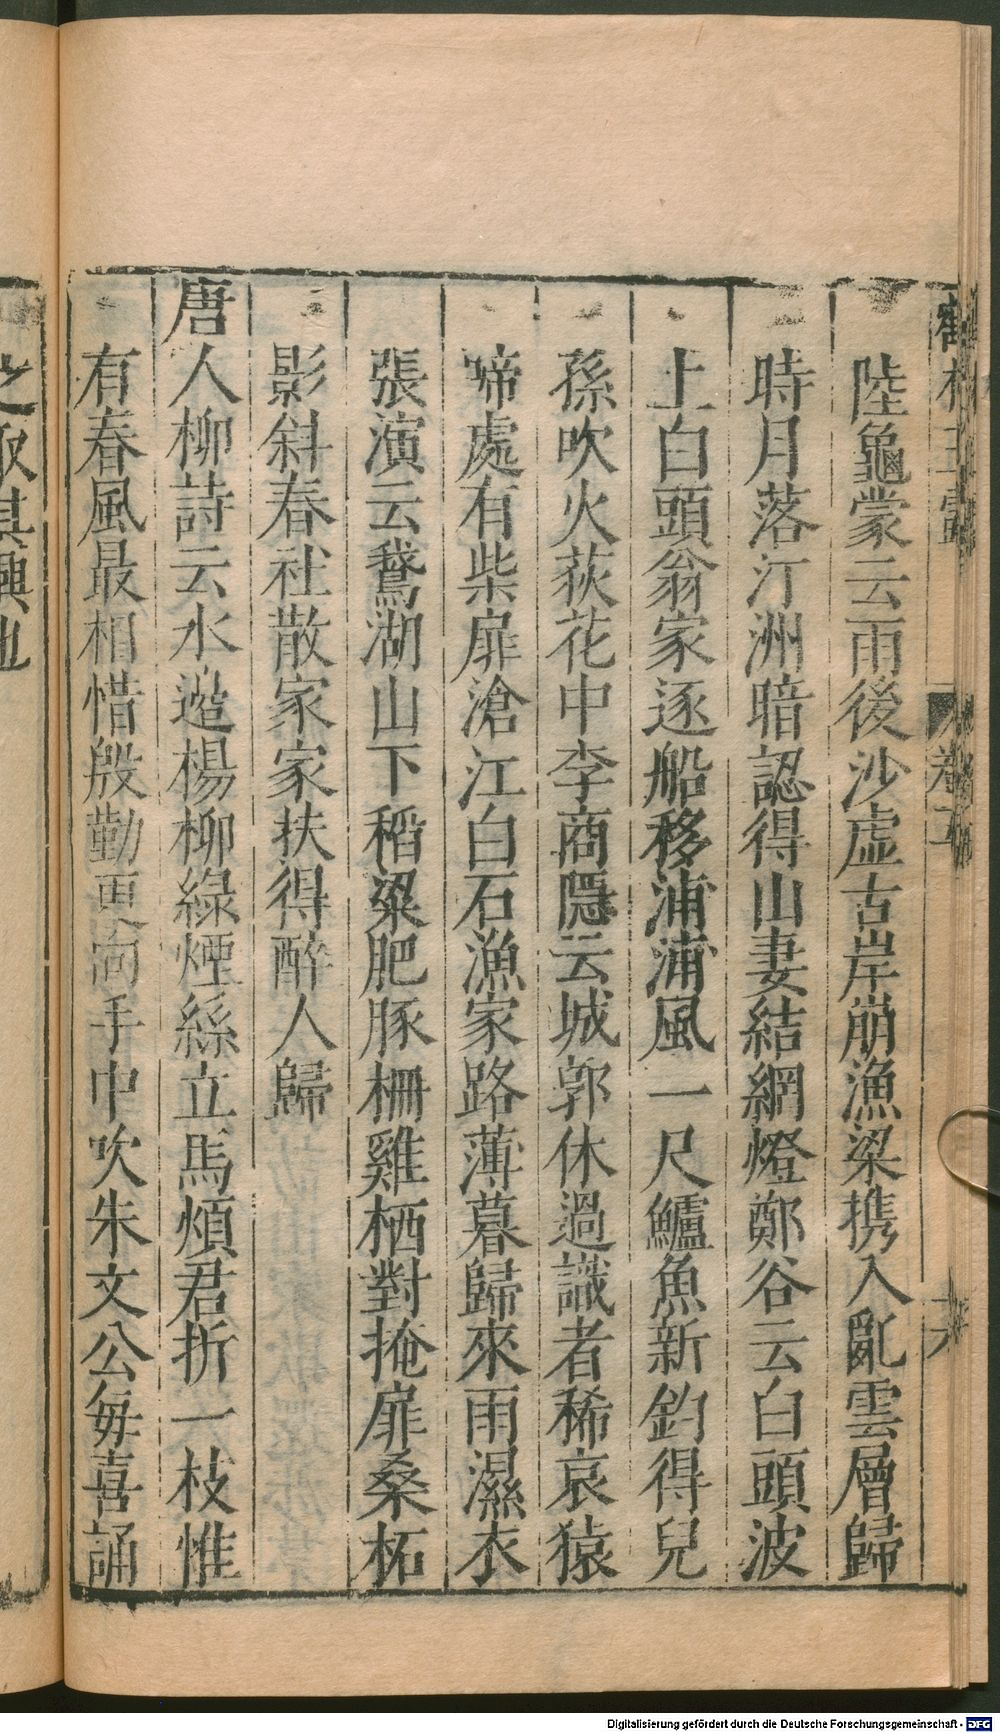 陸龜蒙云雨後沙虛古岸崩漁梁携入亂雲層歸
時月落汀洲暗認得山妻結網燈鄭谷云白頭波
上白頭翁家逐船移浦浦風一尺鱸魚新釣得兒
孫吹火荻花中李商隱云城郭休過識者稀哀猿
啼處有柴扉滄江白石漁家路薄暮歸來雨濕衣
張演云鵞湖山下稻粱肥豚柵雞栖對掩扉桑柘
影斜春社散家家扶得醉人歸
唐人柳詩云水邉楊柳綠煙絲立馬煩君折一枝惟
有春風最相惜殷勤更向手中吹朱文公每喜誦
之取其興也
Digitalisierung gefördert durch die Deutsche Forschungsgemeinschaft - DFG